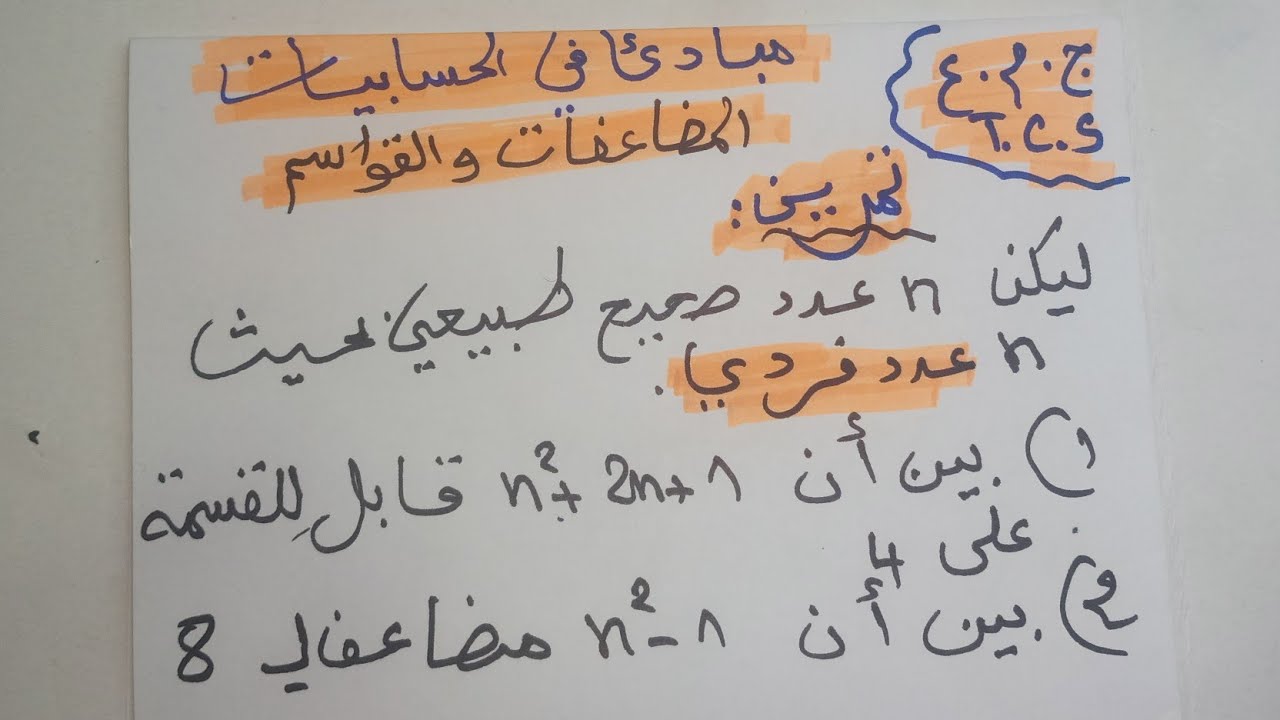 مبادئ في الحسابيات
المضاعفات والقواسم
ج.م.ع
T.C.S
تمرين:
ليكن n عدد صحيح طبيعي بحيث
n عدد فردي.
1) بين أن n²+2n+1 قابل للقسمة
على 4.
2) بين أن n²-1 مضاعف ل 8